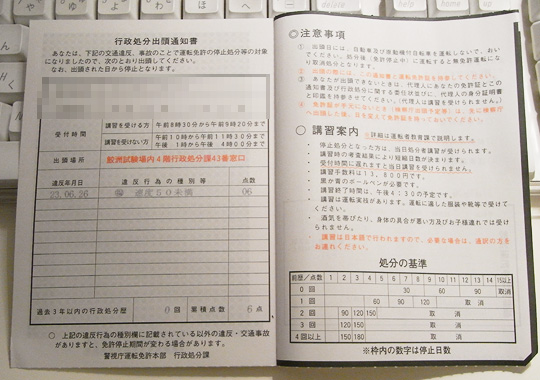 行政処分出頭通知書
あなたは、下記の交通違反、事故のことで運転免許の停止処分等の対象
になりましたので、次のとおり出頭してください。
なお、出頭された日から停止となります。
受付時間
講習を受ける方
午前8時30分から午前9時20分まで
講習を受けない方
午前10時から午前11時30分まで
午後1時から午後4時00分まで
出頭場所
鮫洲試験場内4階行政処分課43番窓口
違反年月日
違反行為の種別等
点数
23.06.26
速度50未満
06
過去3年以内の行政処分歴
0回
累積点数
6点
○ 上記の違反行為の種別欄に記載されている以外の違反・交通事故
がありますと、免許停止期間が変わる場合があります。
警視庁運転免許本部 行政処分課
◎注意事項
① 出頭日には、自動車及び原動機付自転車を運転しないで、おい
でください。処分後(免許停止中)に運転すると無免許運転にな
り取消処分となります。
② 出頭の際には、この通知書と運転免許証を持参してください。
③ あなたが出頭できないときは、代理人にあなたの免許証とこの
通知書及び行政処分に関する委任状並びに、代理人の身分証明書
と印鑑を持参させてください。(代理人は講習を受けられません。)
④ 免許証が手元にないとき
◎ 講習案内
※詳細は運転者教育課で説明します。
・ 停止処分となった方は、当日処分者講習が受けられます。
・ 講習時の考査結果により短縮日数が決まります。
・ 受付時間に遅れますと当日講習は受けられません。
・ 講習手数料は13,800円です。
・ 黒か青のボールペンが必要です。
・ 講習終了時間は、午後4:30の予定です。
・ 講習は運転実技があります。運転に適した服装や靴等で受けて
ください。
・ 酒気を帯びたり、身体の具合が悪い方及びお子様連れでは受け
られません。
・ 講習は日本語で行われますので、必要な場合は、通訳の方を
お連れください。
処分の基準
前歴/点数 1 2 3 4 5 6 7 8 9 10 11 12 13 14 15以上
0回 30 60 90 取消
1回 60 90 120 取消
2回 90 120 150 取消
3回 120 150 取消
4回以上 150 180 取消
※枠内の数字は停止日数
home
help